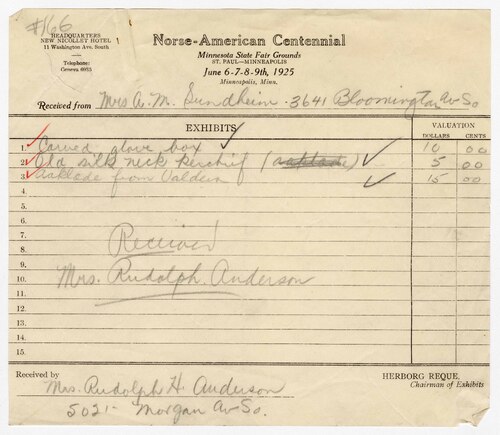 #166
HEADQUARTERS
NEW NICOLLET HOTEL
11 Washington Ave. South
Telephone:
Geneva 6935
Norse-American Centennial
Minnesota State Fair Grounds
ST. PAUL—MINNEAPOLIS
June 6-7-8-9th, 1925
Minneapolis, Minn.
Received from Mrs A. M. Sundheim · 3641 Bloomington Av So
EXHIBITS
VALUATION
DOLLARS CENTS
1. Carved glove box 10 00
2. Old silk neck kerchif (aaklade) 5 00
3. Aaklade from Valders 15 00
4.
5.
6.
7.
8. Received
9.
10. Mrs. Rudolph. Anderson
11.
12.
13.
14.
15.
Received by
Mrs. Rudolph H. Anderson
5021- Morgan Av So.
HERBORG REQUE.
Chairman of Exhibits